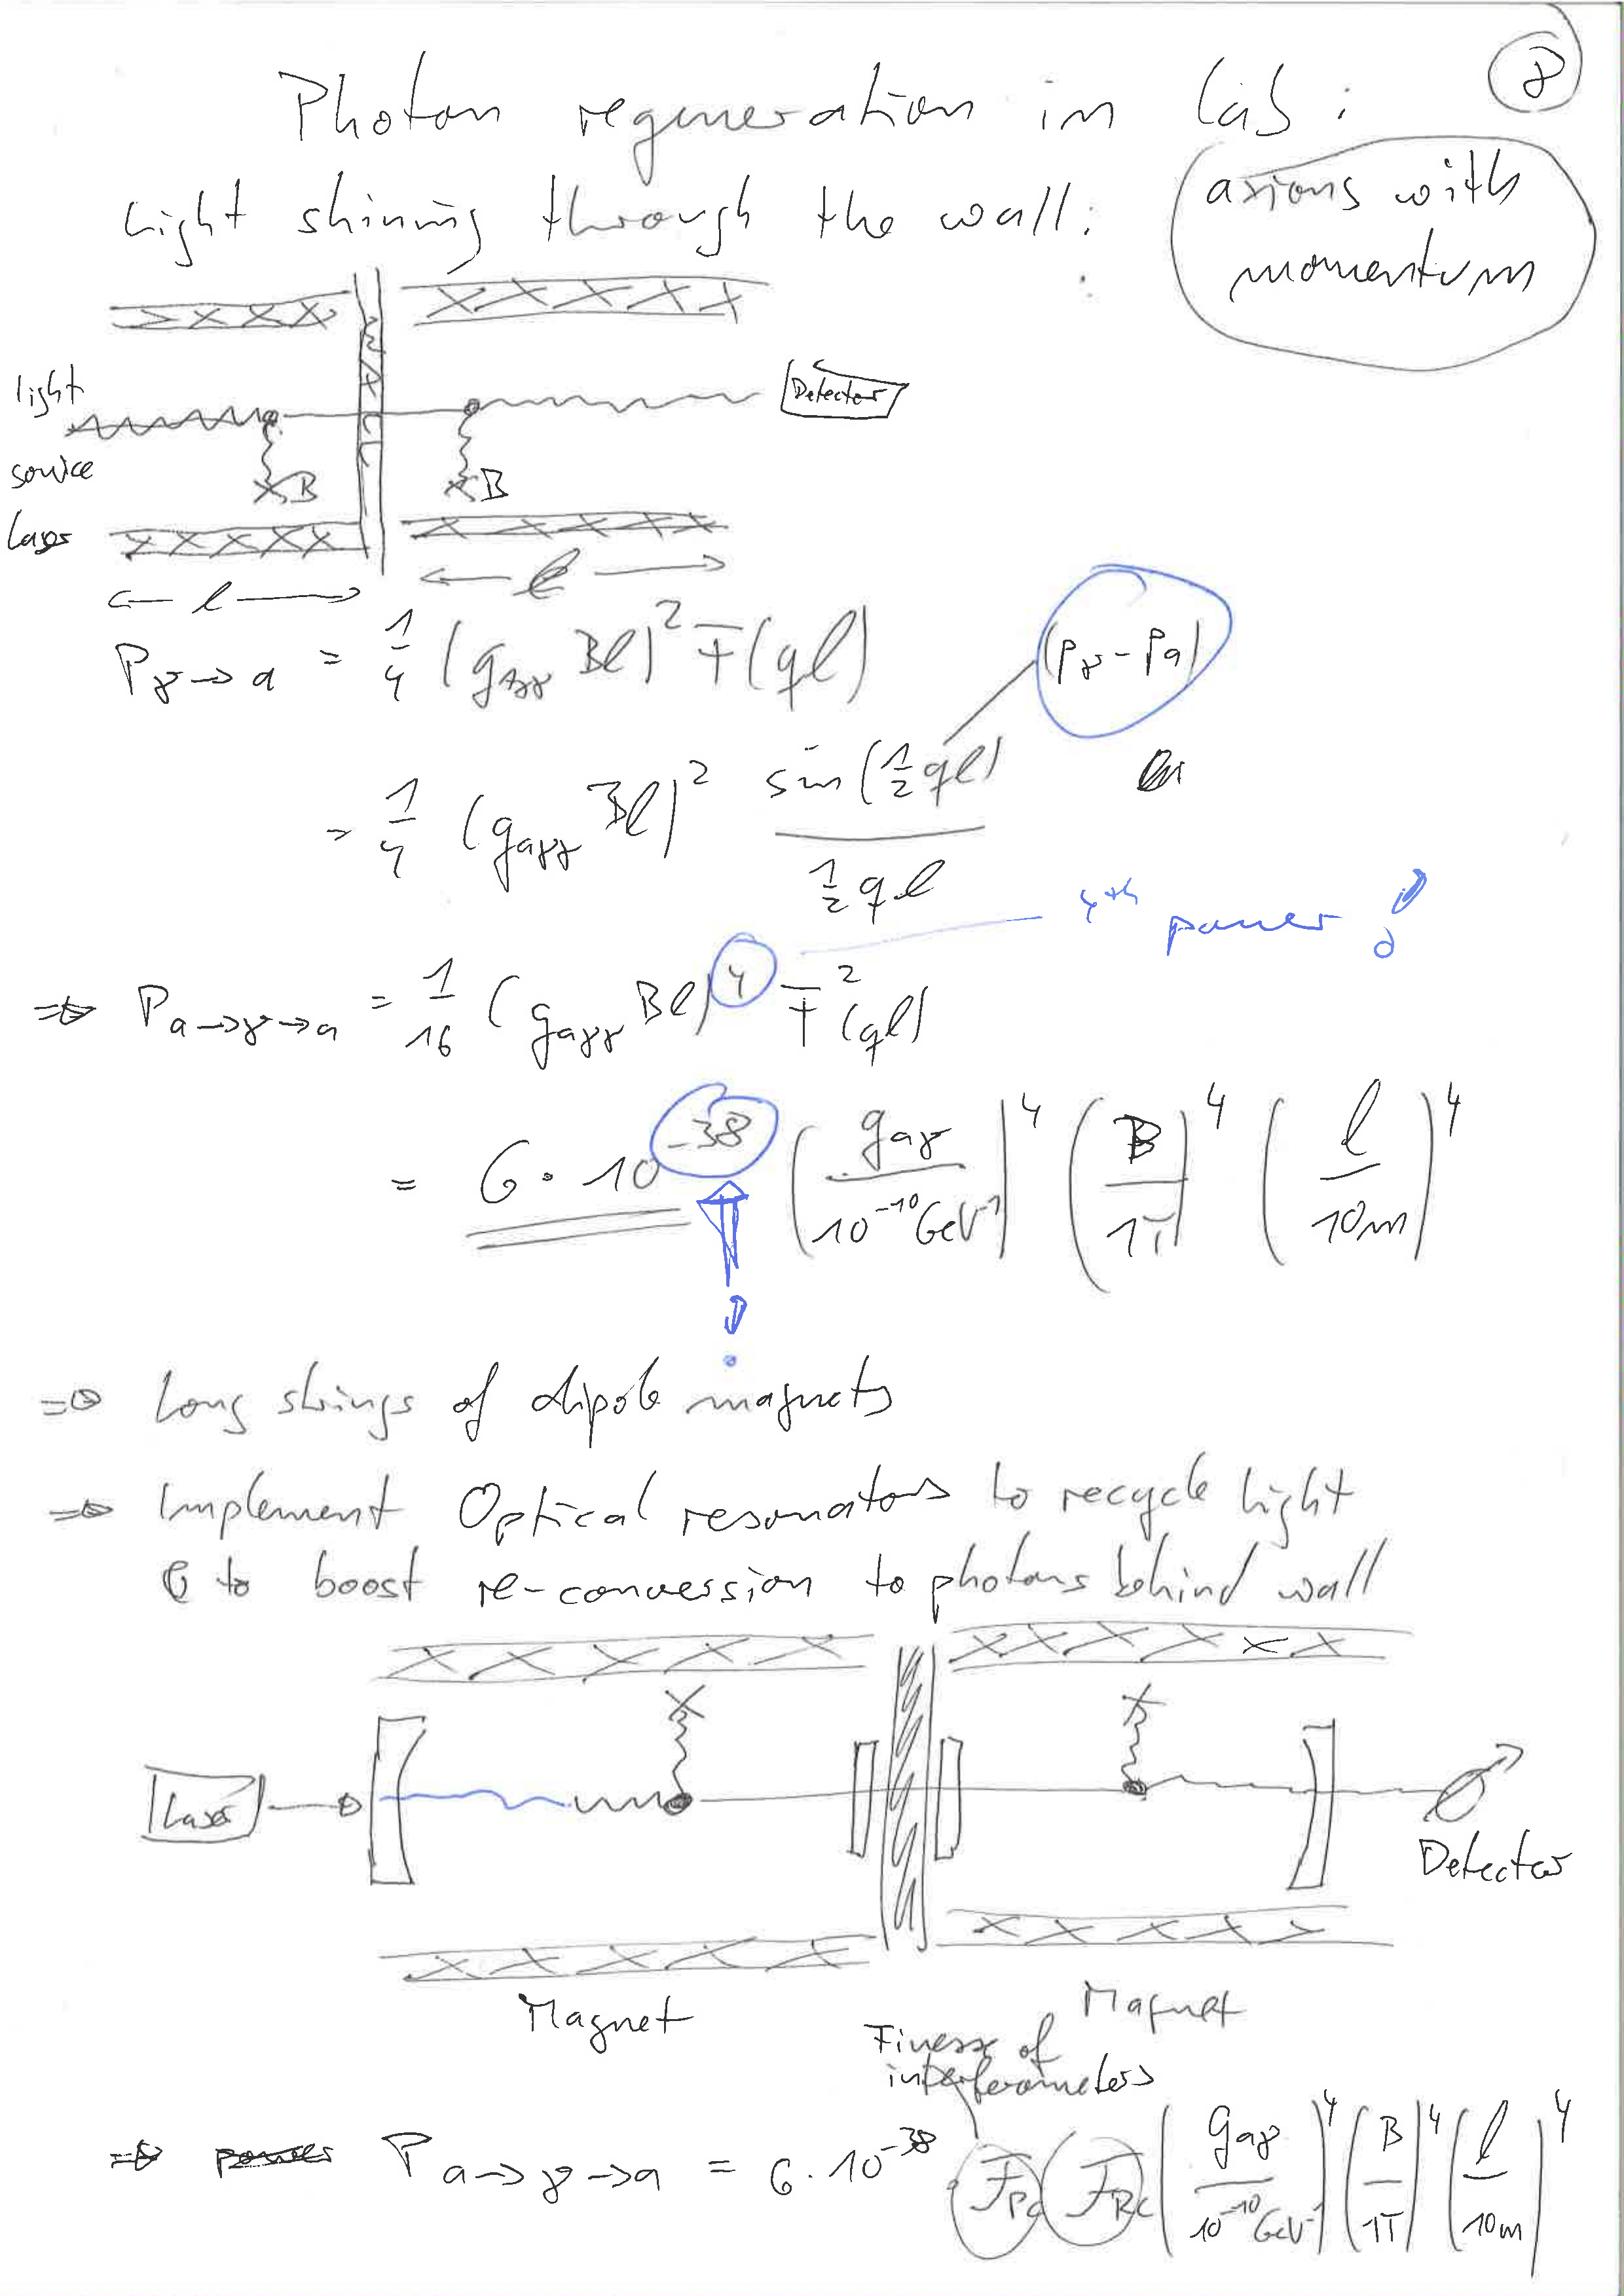 8
Photon regeneration in lab:
light shining through the wall:
axions with
momentum
WALL
light
source
Laser
B
B
Detector
l
l
P_γ→a = 1/4 (g_aγγ Bl)² F(ql)
(p_γ - p_a)
= 1/4 (g_aγγ Bl)² sin(1/2 ql) / 1/2 ql
4th power!
=> P_a→γ→a = 1/16 (g_aγγ Bl)⁴ F²(ql)
= 6 · 10⁻³⁸ (g_aγ / 10⁻¹⁰ GeV⁻¹)⁴ (B / 1T)⁴ (l / 10m)⁴
!
=> Long strings of dipole magnets
=> Implement Optical resonators to recycle light
& to boost re-conversion to photons behind wall
Laser
Detector
Magnet
Magnet
Finesse of
interferometers
=> P_a→γ→a = 6 · 10⁻³⁸ · F_PC F_RC (g_aγ / 10⁻¹⁰ GeV⁻¹)⁴ (B / 1T)⁴ (l / 10m)⁴